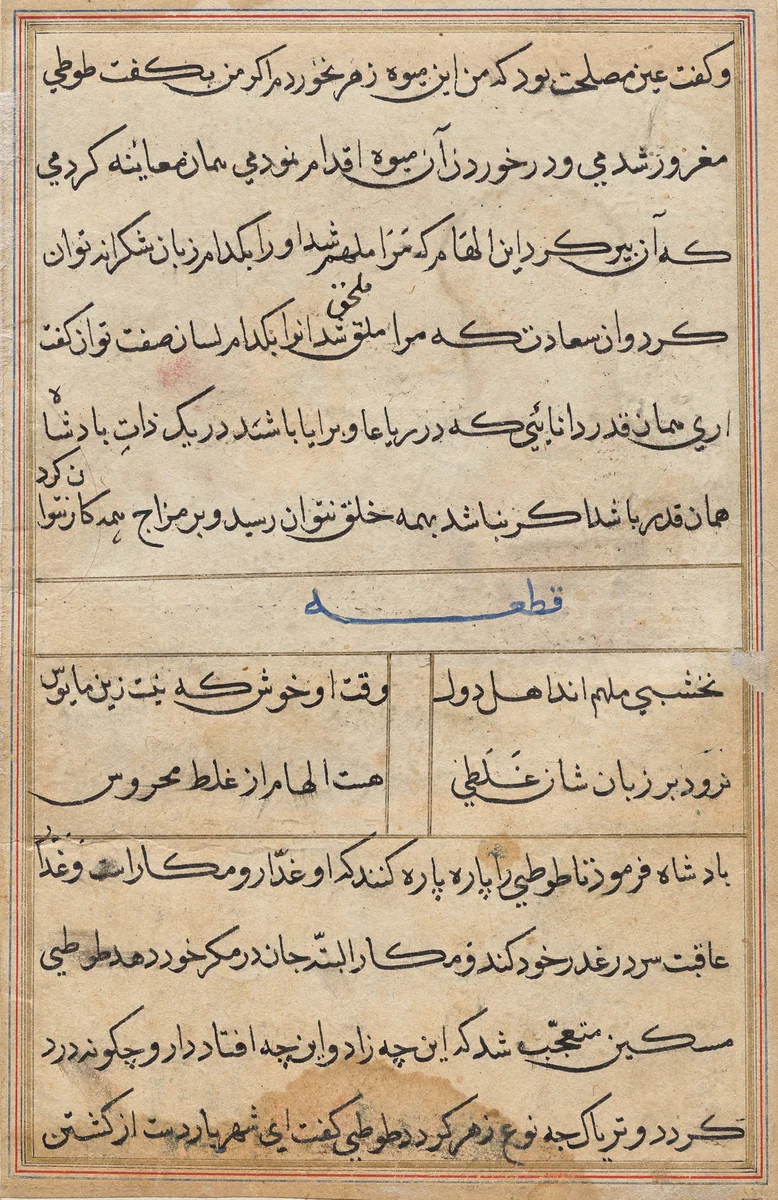 و کفت عین مصلحت بود که من این میوه زهر نخوردم اکر من بکفت طوطی
مغرور شدمی و در خوردن آن میوه اقدام نمودمی همان معاینه کردمی
که آن پیر کرد این الهام که مَرا ملهم شد او را بکدام زبان شکرانه توان
کرد وان سعادت که مرا ملقی ملحق شد انرا بکدام لسان صفت توان کفت
اری همان قدر دانائیی که در رعایا و برایا باشد در یک ذاتِ بادشاه
همان قدر باشد اکر نباشد بهمه خلق نتوان رسید و بر مزاج همه کار نتوان کرد
قطعه
نخشبی ملهم اند اهل دول	وقت او خوش که نیست زین مایوس
نرود بر زبان شان غَلَطی	هست الهام از غلط محروس
بادشاه فرمود تا طوطی را پاره پاره کنند که او غدّار و مکار است وَ غَدّار
عاقبت سر در غدر خود کند و مکار البتّه جان در مکر خود دهد طوطی
مسکین متعجّب شد که این چه زاد و این چه افتاد دارو چکونه درد
کردد و تریاک چه نوع زهر کردد طوطی کفت ای شهریار دست از کشتن